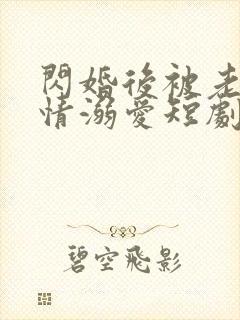 閃婚後被老
情溺愛短劇
碧空飛影